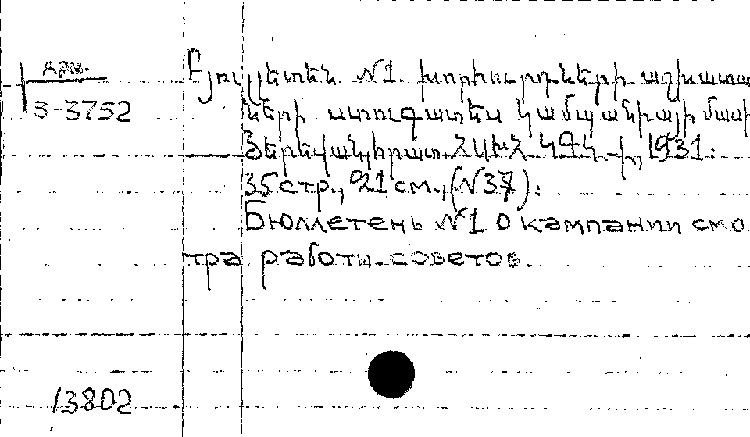 Арм.
3-3752
Բյուլլետեն №1. խորհուրդների աշխատա
ների ստուգատես կամպանիայի մասի
Յերեվան
ՀՍԽՀ ԿԳԿ-ի, 1931:
35 стр., 21 см., (№37):
Бюллетень №1 о кампании смо
тра работы советов.
13802